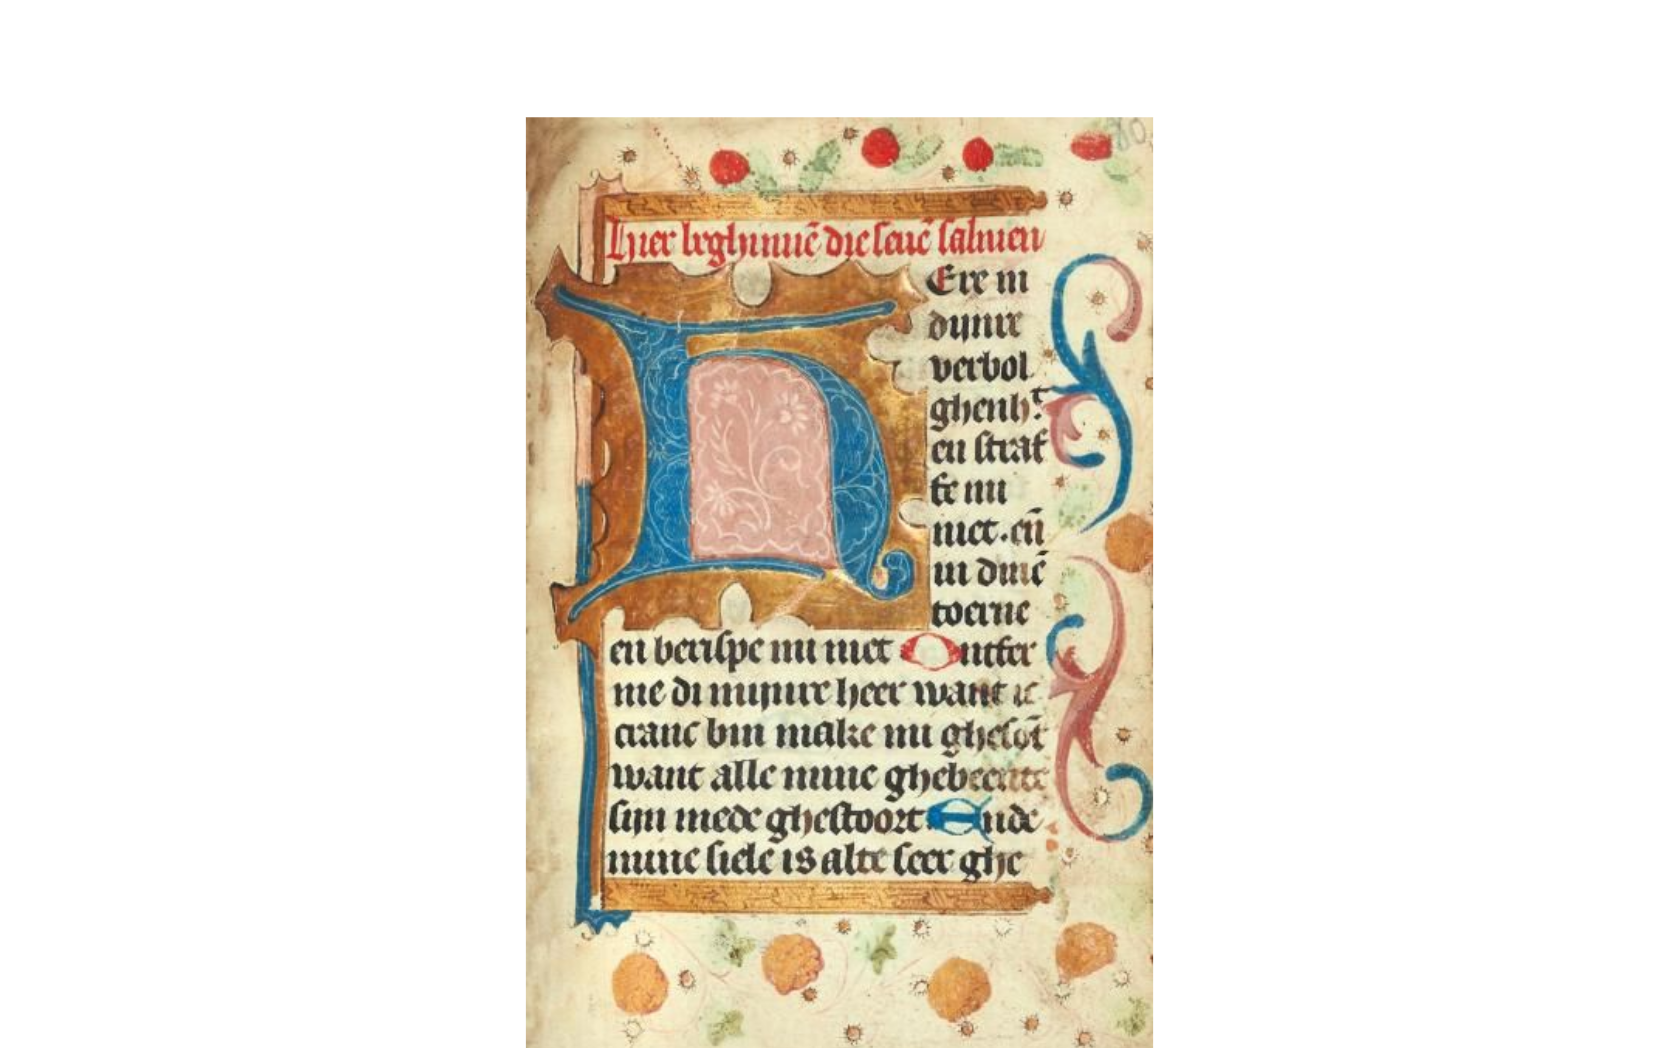 Hier beghinnē die seuē salmen
HEre in
dijnre
verbol
ghenht
en straf
fe mi
niet. eñ
in dinē
toerne
en berispe mi niet Ontfer
me di mijnre heer want ic
cranc bin make mi ghesōt
want alle mine ghebeente
sijn mede ghestoort Ende
mine siele is alte seer ghe
80